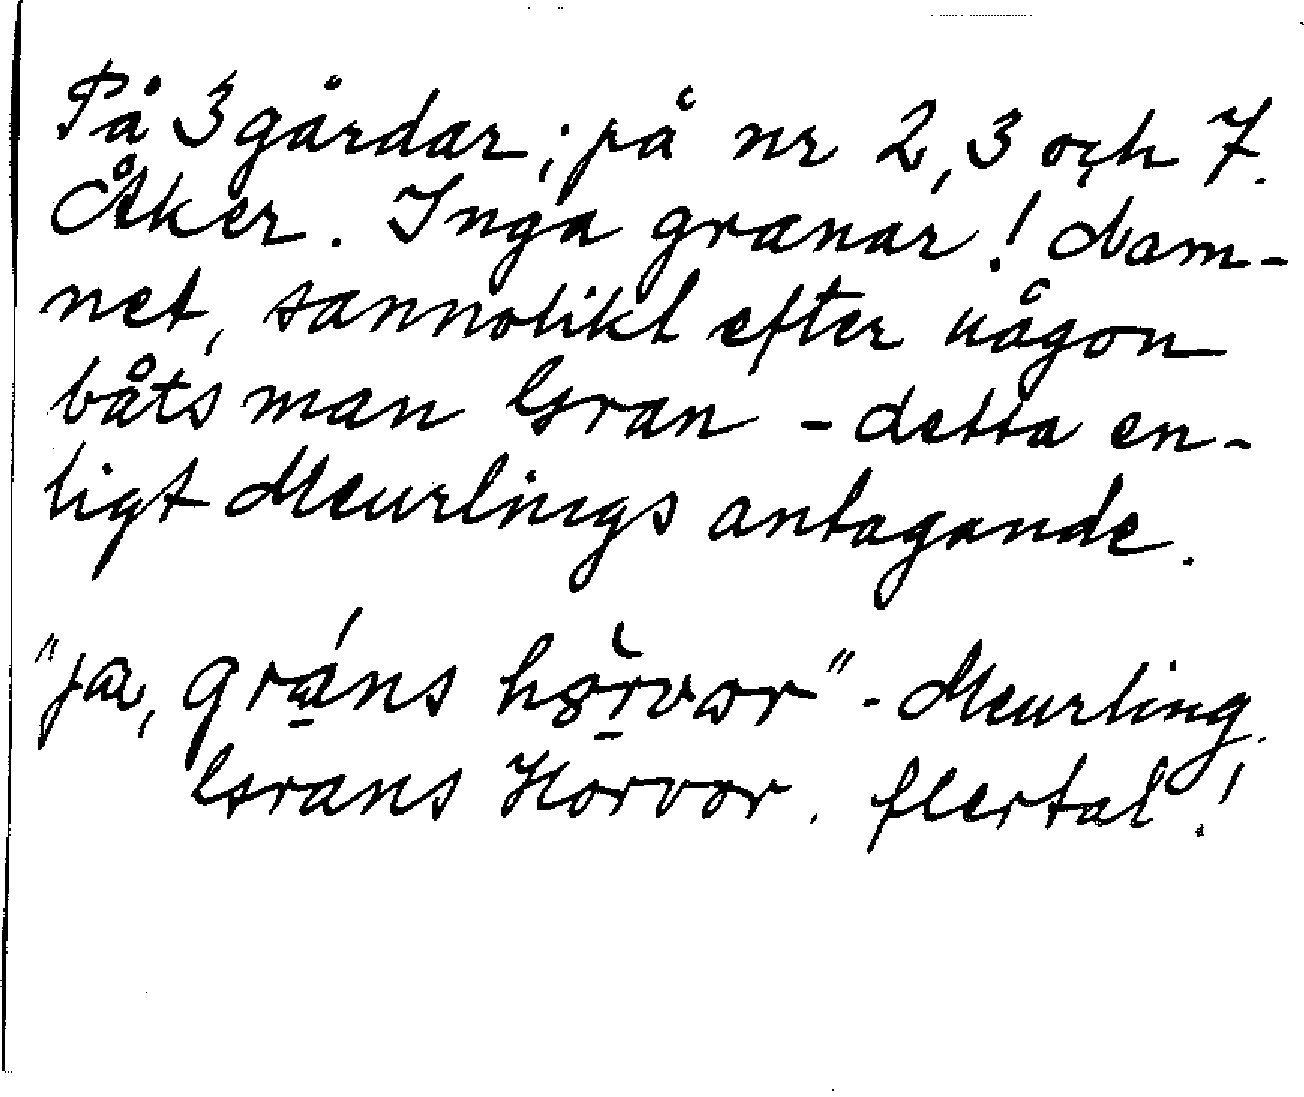 På 3 gårdar; på nr 2, 3 och 7.
Åker. Inga granar! Nam-
net, sannolikt efter någon
båtsman Gran - detta en-
ligt Meurlings antagande.
"ja, gráns hörvar" - Meurling.
Grans Horvor. flertal!